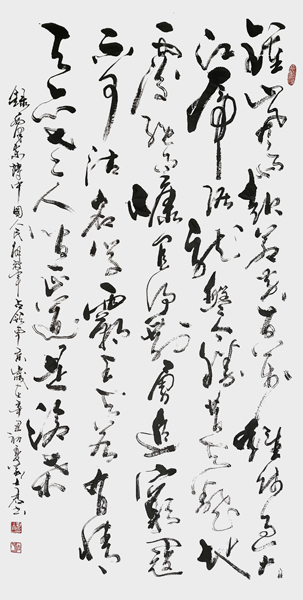 鍾山風雨起蒼黃百萬雄師過大
江虎踞龍盤今勝昔天翻地
覆慨而慷宜將剩勇追窮寇
不可沽名學霸王天若有情
天亦老人間正道是滄桑
錄毛澤東詩中國人民解放軍占領南京歲在辛丑初夏